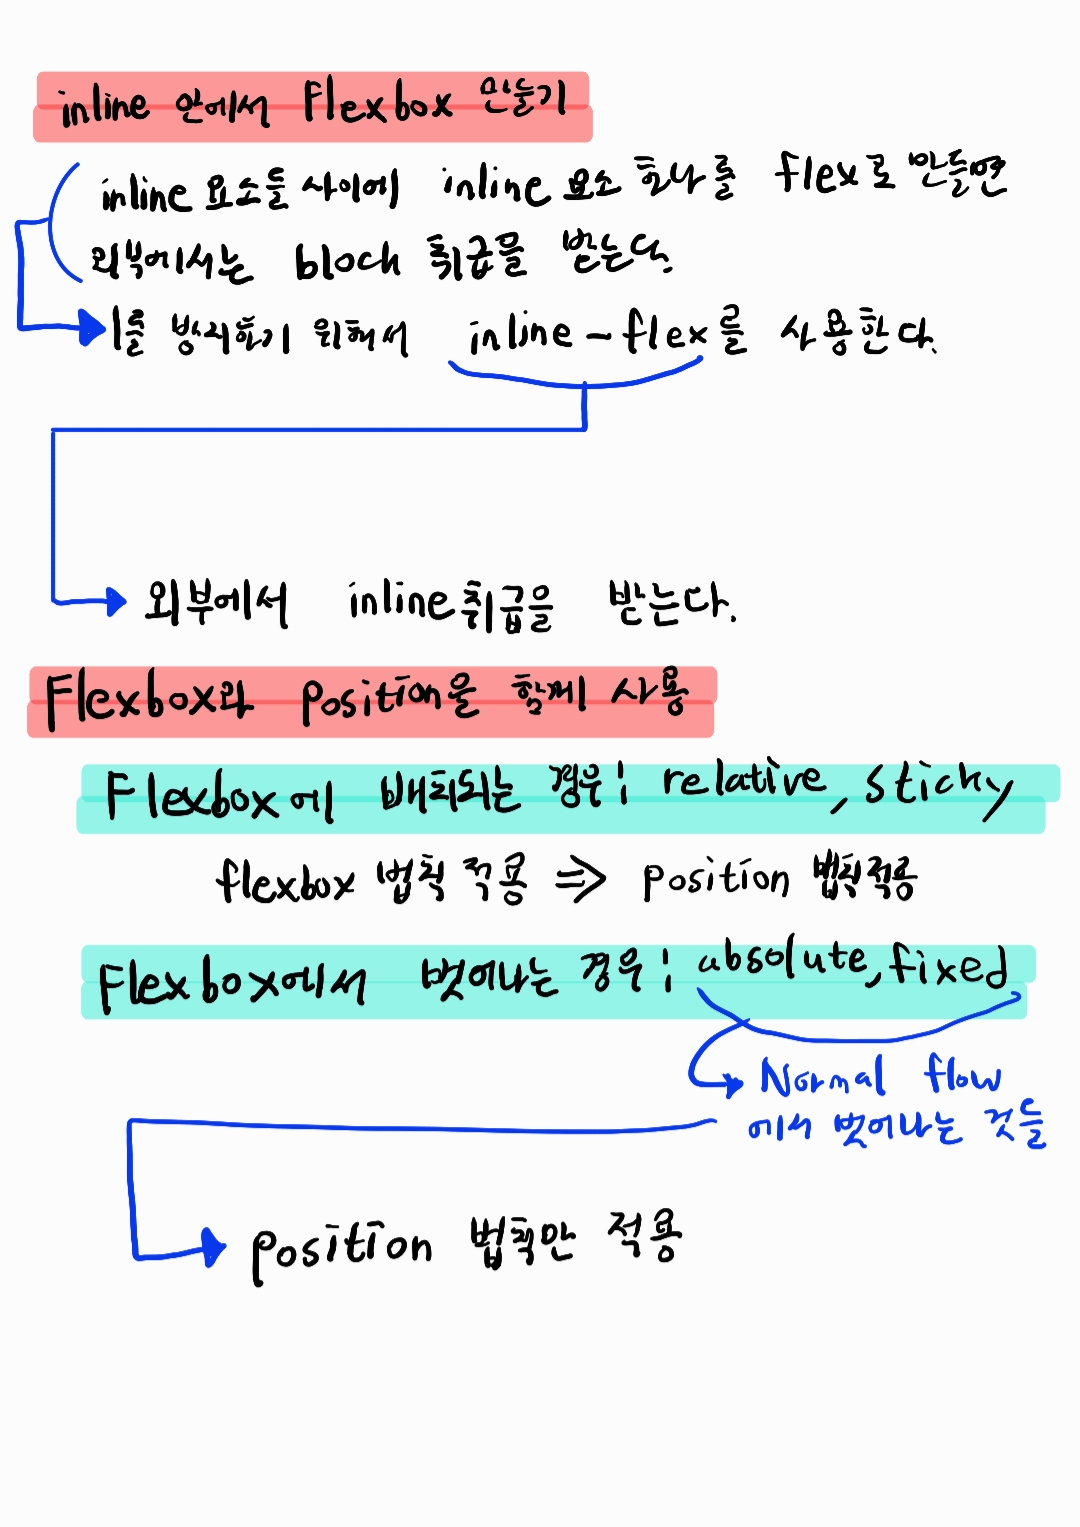 inline 안에서 Flexbox 만들기
inline 요소들 사이에 inline 요소 하나를 flex로 만들면
외부에서는 block 취급을 받는다.
이를 방지하기 위해서 inline-flex를 사용한다.
외부에서 inline 취급을 받는다.
Flexbox와 position을 함께 사용
Flexbox에 배치되는 경우 : relative, sticky
flexbox 법칙 적용 ⇒ position 법칙적용
Flexbox에서 벗어나는 경우 : absolute, fixed
Normal flow
에서 벗어나는 것들
position 법칙만 적용